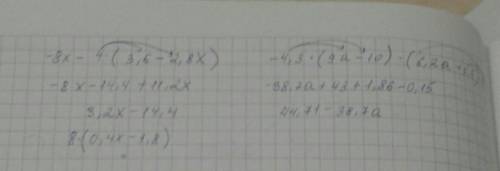 -8x - 4(3,6 - 2,8x)
-8x - 14,4 + 11,2x
3,2x - 14,4
8·(0,4x - 1,8)
-4,3·(9a - 10)
-38,7a + 43 + 1,86 - 0,15
44,71 - 38,7a